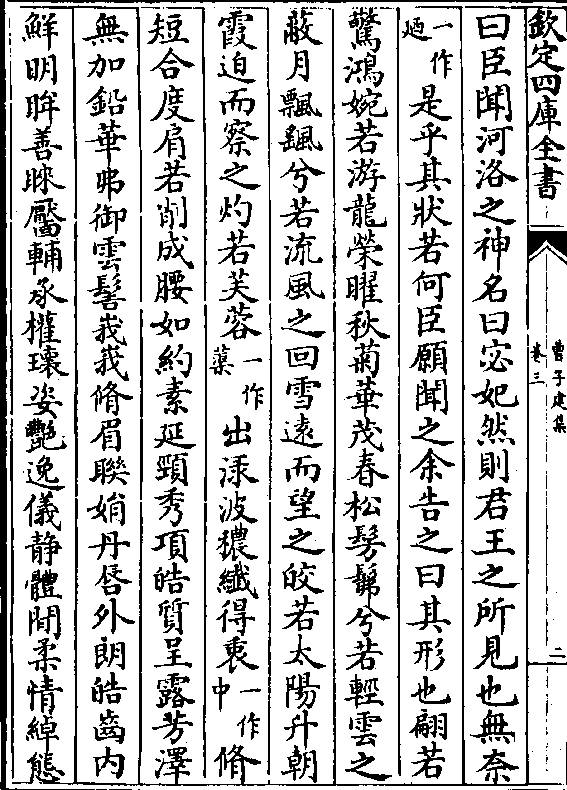 欽定四庫全書
曹子建集
卷三
二
曰臣聞河洛之神名曰宓妃然則君王之所見也無奈
一作迺是乎其狀若何臣願聞之余告之曰其形也翩若
驚鴻婉若游龍榮曜秋菊華茂春松髣髴兮若輕雲之
蔽月飄颻兮若流風之回雪遠而望之皎若太陽升朝
霞迫而察之灼若芙蓉一作蕖出渌波穠纖得衷一作中脩
短合度肩若削成腰如約素延頸秀項皓質呈露芳澤
無加鉛華弗御雲髻峩峩脩眉聯娟丹唇外朗皓齒内
鮮明眸善睞靨輔承權瓌姿艷逸儀静體閒柔情綽態